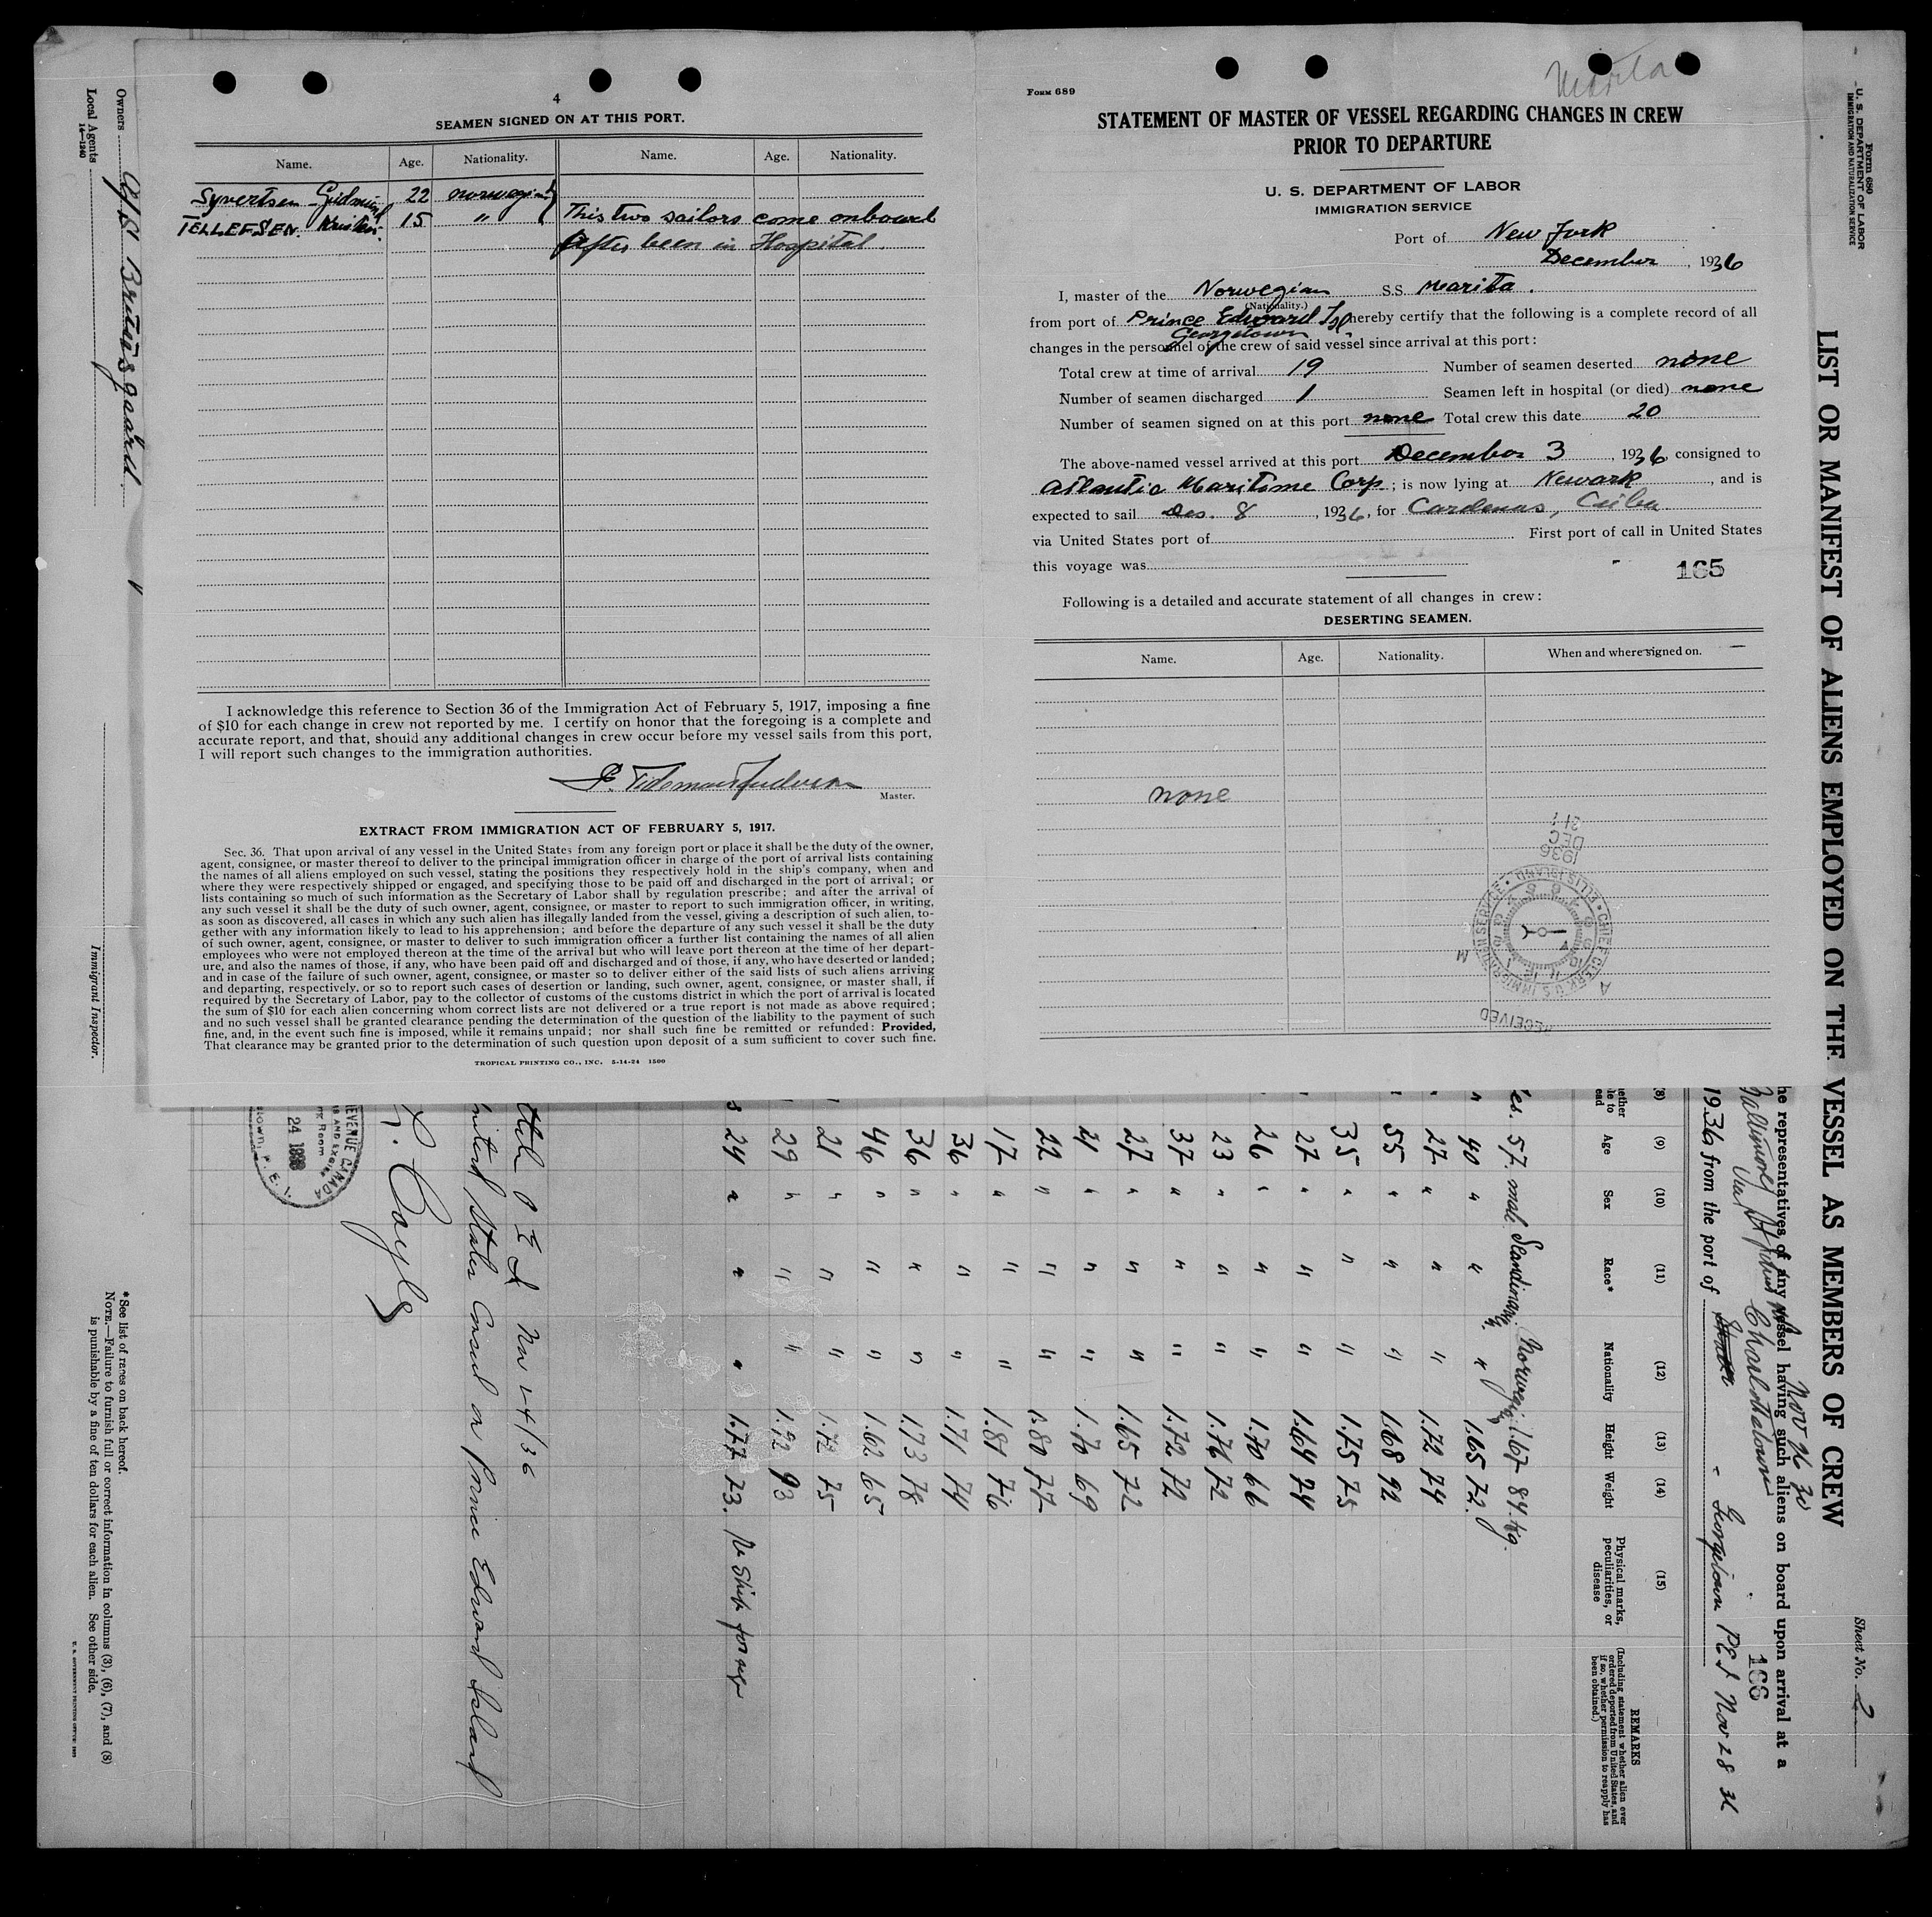 4
SEAMEN SIGNED ON AT THIS PORT.
Name. Age. Nationality. Name. Age. Nationality.
Syvertsen Gudmund 22 norwegian
TELLEFSEN. Kristen. 15 "
This two sailors come onboard
After been in Hospital.
I acknowledge this reference to Section 36 of the Immigration Act of February 5, 1917, imposing a fine
of $10 for each change in crew not reported by me. I certify on honor that the foregoing is a complete and
accurate report, and that, should any additional changes in crew occur before my vessel sails from this port,
I will report such changes to the immigration authorities.
Master.
EXTRACT FROM IMMIGRATION ACT OF FEBRUARY 5, 1917.
Sec. 36. That upon arrival of any vessel in the United States from any foreign port or place it shall be the duty of the owner,
agent, consignee, or master thereof to deliver to the principal immigration officer in charge of the port of arrival lists containing
the names of all aliens employed on such vessel, stating the positions they respectively hold in the ship's company, when and
where they were respectively shipped or engaged, and specifying those to be paid off and discharged in the port of arrival; or
lists containing so much of such information as the Secretary of Labor shall by regulation prescribe; and after the arrival of
any such vessel it shall be the duty of such owner, agent, consignee, or master to report to such immigration officer, in writing,
as soon as discovered, all cases in which any such alien has illegally landed from the vessel, giving a description of such alien, to-
gether with any information likely to lead to his apprehension; and before the departure of any such vessel it shall be the duty
of such owner, agent, consignee, or master to deliver to such immigration officer a further list containing the names of all alien
employees who were not employed thereon at the time of the arrival but who will leave port thereon at the time of her depart-
ure, and also the names of those, if any, who have been paid off and discharged and of those, if any, who have deserted or landed;
and in case of the failure of such owner, agent, consignee, or master so to deliver either of the said lists of such aliens arriving
and departing, respectively, or so to report such cases of desertion or landing, such owner, agent, consignee, or master shall, if
required by the Secretary of Labor, pay to the collector of customs of the customs district in which the port of arrival is located
the sum of $10 for each alien concerning whom correct lists are not delivered or a true report is not made as above required;
and no such vessel shall be granted clearance pending the determination of the question of the liability to the payment of such
fine, and, in the event such fine is imposed, while it remains unpaid; nor shall such fine be remitted or refunded: Provided,
That clearance may be granted prior to the determination of such question upon deposit of a sum sufficient to cover such fine.
TROPICAL PRINTING CO., INC. 5-14-24 1500
FORM 689
Marita
STATEMENT OF MASTER OF VESSEL REGARDING CHANGES IN CREW
PRIOR TO DEPARTURE
U. S. DEPARTMENT OF LABOR
IMMIGRATION SERVICE
Port of New York
December, 1936
I, master of the Norwegian SS. Marita.
(Nationality.)
from port of Prince Edward Isl hereby certify that the following is a complete record of all
Georgetown
changes in the personnel of the crew of said vessel since arrival at this port:
Total crew at time of arrival 19 Number of seamen deserted none
Number of seamen discharged 1 Seamen left in hospital (or died) none
Number of seamen signed on at this port none Total crew this date 20
The above-named vessel arrived at this port December 3, 1936, consigned to
Atlantic Maritime Corp.; is now lying at Newark, and is
expected to sail Des. 8, 1936, for Cardenas, Cuba.
via United States port of First port of call in United States
this voyage was
165
Following is a detailed and accurate statement of all changes in crew:
DESERTING SEAMEN.
Name. Age. Nationality. When and where signed on.
none
1936
DEC
RECEIVED
CHIEF CLERK U.S. IMMIGRATION SERVICE • ELLIS ISLAND
A M
Form 680
U. S. DEPARTMENT OF LABOR
IMMIGRATION AND NATURALIZATION SERVICE
Sheet No. 2
LIST OR MANIFEST OF ALIENS EMPLOYED ON THE VESSEL AS MEMBERS OF CREW
he representatives of any vessel having such aliens on board upon arrival at a
Baltimore, Via St John Charlottetown Nov 26 30
166
1936 from the port of Georgetown P E I Nov 28 36
(8) (9) (10) (11) (12) (13) (14) (15)
Age Sex Race* Nationality Height Weight Physical marks, peculiarities, or disease
REMARKS
(Including statement whether alien ever
ordered deported from United States, and
if so, whether permission to reapply has
been obtained.)
Yes. 57. male Scandinav. Norwegi. 1.67 84 kg.
" 40 " " " 1.65 72.
27 " " " 1.72 74
55 " " " 1.68 92
35 " " " 1.75 75
27 " " " 1.64 74
26 " " " 1.70 66
23 " " " 1.76 72
37 " " " 1.72 72
27 " " " 1.65 72
21 " " " 1.70 69
22 " " " 1.80 77
17 " " " 1.81 76
36 " " " 1.71 74
36 " " " 1.73 78
46 " " " 1.62 65
21 " " " 1.72 75
29 " " " 1.92 93
24 " " " 1.77 73.
P E I Nov 24/36
United States Consul on Prince Edward Island
Coyle
REVENUE CANADA
24 1936
P. E. I.
*See list of races on back hereof.
NOTE.—Failure to furnish full or correct information in columns (3), (6), (7), and (8)
is punishable by a fine of ten dollars for each alien. See other side.
U. S. GOVERNMENT PRINTING OFFICE
Owners A/S Brutusgaard
Local Agents "
14—1240
Immigrant Inspector.